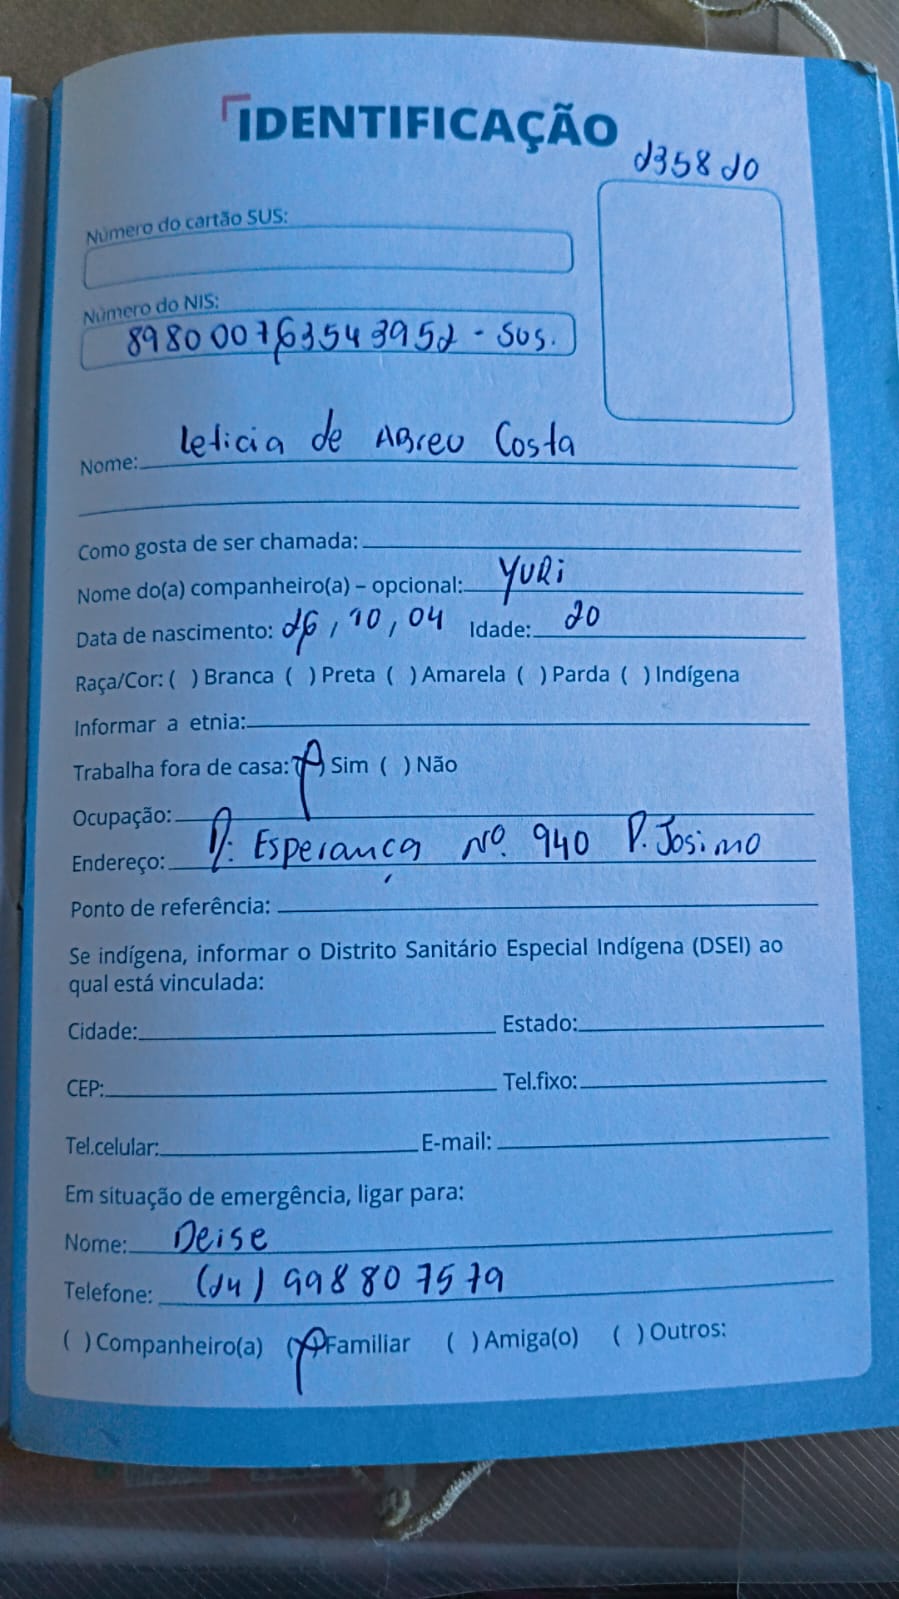 IDENTIFICAÇÃO
235820
Número do cartão SUS:
Número do NIS:
898000763543952 - SUS.
Nome: Leticia de Abreu Costa
Como gosta de ser chamada:
Nome do(a) companheiro(a) – opcional: Yuri
Data de nascimento: 26, 10, 04 Idade: 20
Raça/Cor: ( ) Branca ( ) Preta ( ) Amarela ( ) Parda ( ) Indígena
Informar a etnia:
Trabalha fora de casa: (X) Sim ( ) Não
Ocupação:
Endereço: Esperança Nº. 940 P. Josimo
Ponto de referência:
Se indígena, informar o Distrito Sanitário Especial Indígena (DSEI) ao
qual está vinculada:
Cidade: Estado:
CEP: Tel.fixo:
Tel.celular: E-mail:
Em situação de emergência, ligar para:
Nome: Deise
Telefone: (24) 998807579
( ) Companheiro(a) (X) Familiar ( ) Amiga(o) ( ) Outros: